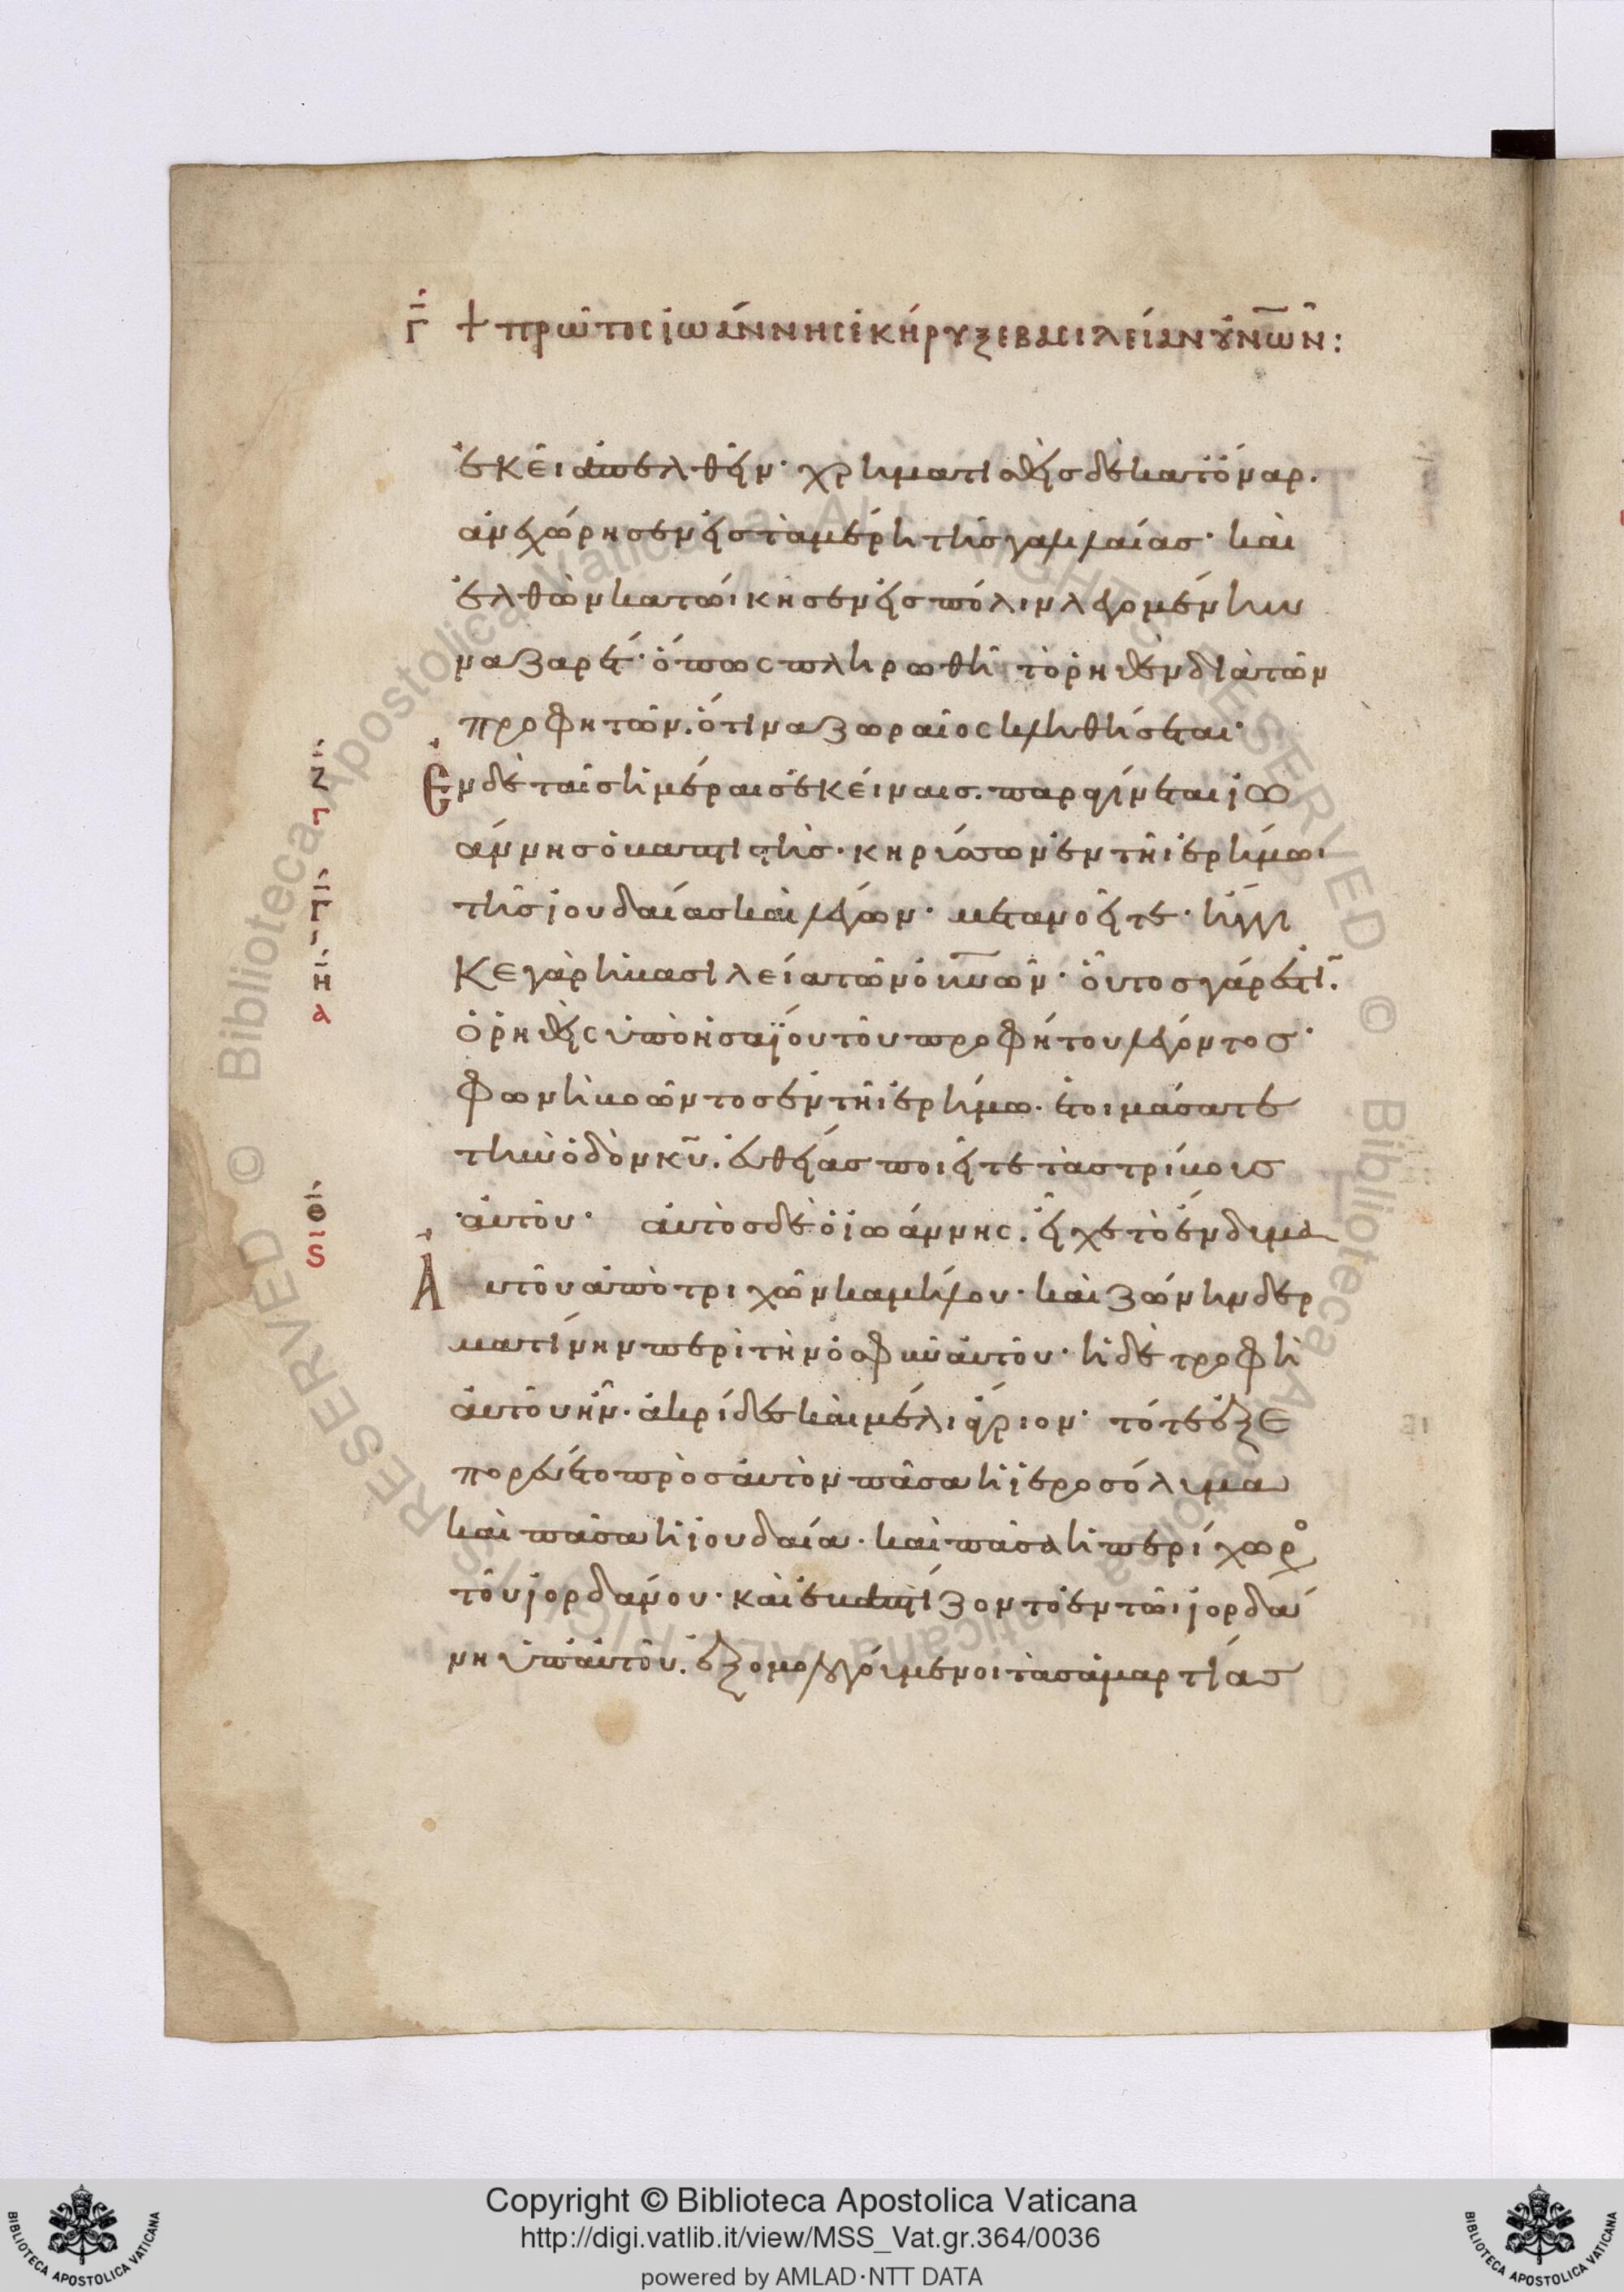 Γ̅ + πρῶτος ἰωάννης ἐκήρυξε βασιλείαν οὐν̅ῶν:
ἐκεῖ ἀπελθεῖν· χρηματισθεὶς δὲ κατ' ὄναρ.
ἀνεχώρησεν εἰς τὰ μέρη τῆς γαλιλαίας· καὶ
ἐλθὼν κατώικησεν εἰς πόλιν λεγομένην
ναζαρέτ· ὅπως πληρωθῆ τὸ ῥηθὲν διὰ τῶν
προφητῶν. ὅτι ναζωραῖος κληθήσεται·
Ζ̅
Γ
Ἐν δὲ ταῖς ἡμέραις ἐκείναις. παραγίνεται ἰω
άννης ὁ βαπτιστὴς· κηρύσσων ἐν τῆι ἐρήμωι
Γ̅
τῆς ἰουδαίας καὶ λέγων· μετανοεῖτε· ἤγγι
Η̅
Α
κε γὰρ ἡ βασιλεία τῶν οὐν̅ῶν· οὗτος γάρ ἐστι̅.
ὁ ῥηθεὶς ὑπὸ ἠσαΐου τοῦ προφήτου λέγοντος·
φωνὴ βοῶντος ἐν τῆι ἐρήμω. ἑτοιμάσατε
τὴν ὁδὸν κ̅υ̅. εὐθείας ποιεῖτε τὰς τρίβους
Θ̅
Ϛ
αὐτοῦ· αὐτὸς δὲ ὁ ἰωάννης. εἶχε τὸ ἔνδυμα
Α υτοῦ ἀπὸ τριχῶν καμήλου· καὶ ζώνην δερ
ματίνην περὶ τὴν ὀσφὺν αὐτοῦ· ἡ δὲ τροφὴ
αὐτοῦ ἦν. ἀκρίδες καὶ μέλι ἄγριον· τότε ἐξε
πορεύετο πρὸς αὐτὸν πᾶσα ἡ ἱεροσόλυμα
καὶ πᾶσα ἡ ἰουδαία. καὶ πᾶσα ἡ περίχωρο
τοῦ ἰορδάνου· καὶ ἐβαπτίζοντο ἐν τῶι ἰορδά
νη ὑπ' αὐτοῦ. ἐξομολογούμενοι τὰς ἁμαρτίας
© Biblioteca Apostolica Vaticana ALL RIGHTS RESERVED
Copyright © Biblioteca Apostolica Vaticana
http://digi.vatlib.it/view/MSS_Vat.gr.364/0036
powered by AMLAD·NTT DATA
BIBLIOTECA APOSTOLICA VATICANA
BIBLIOTECA APOSTOLICA VATICANA